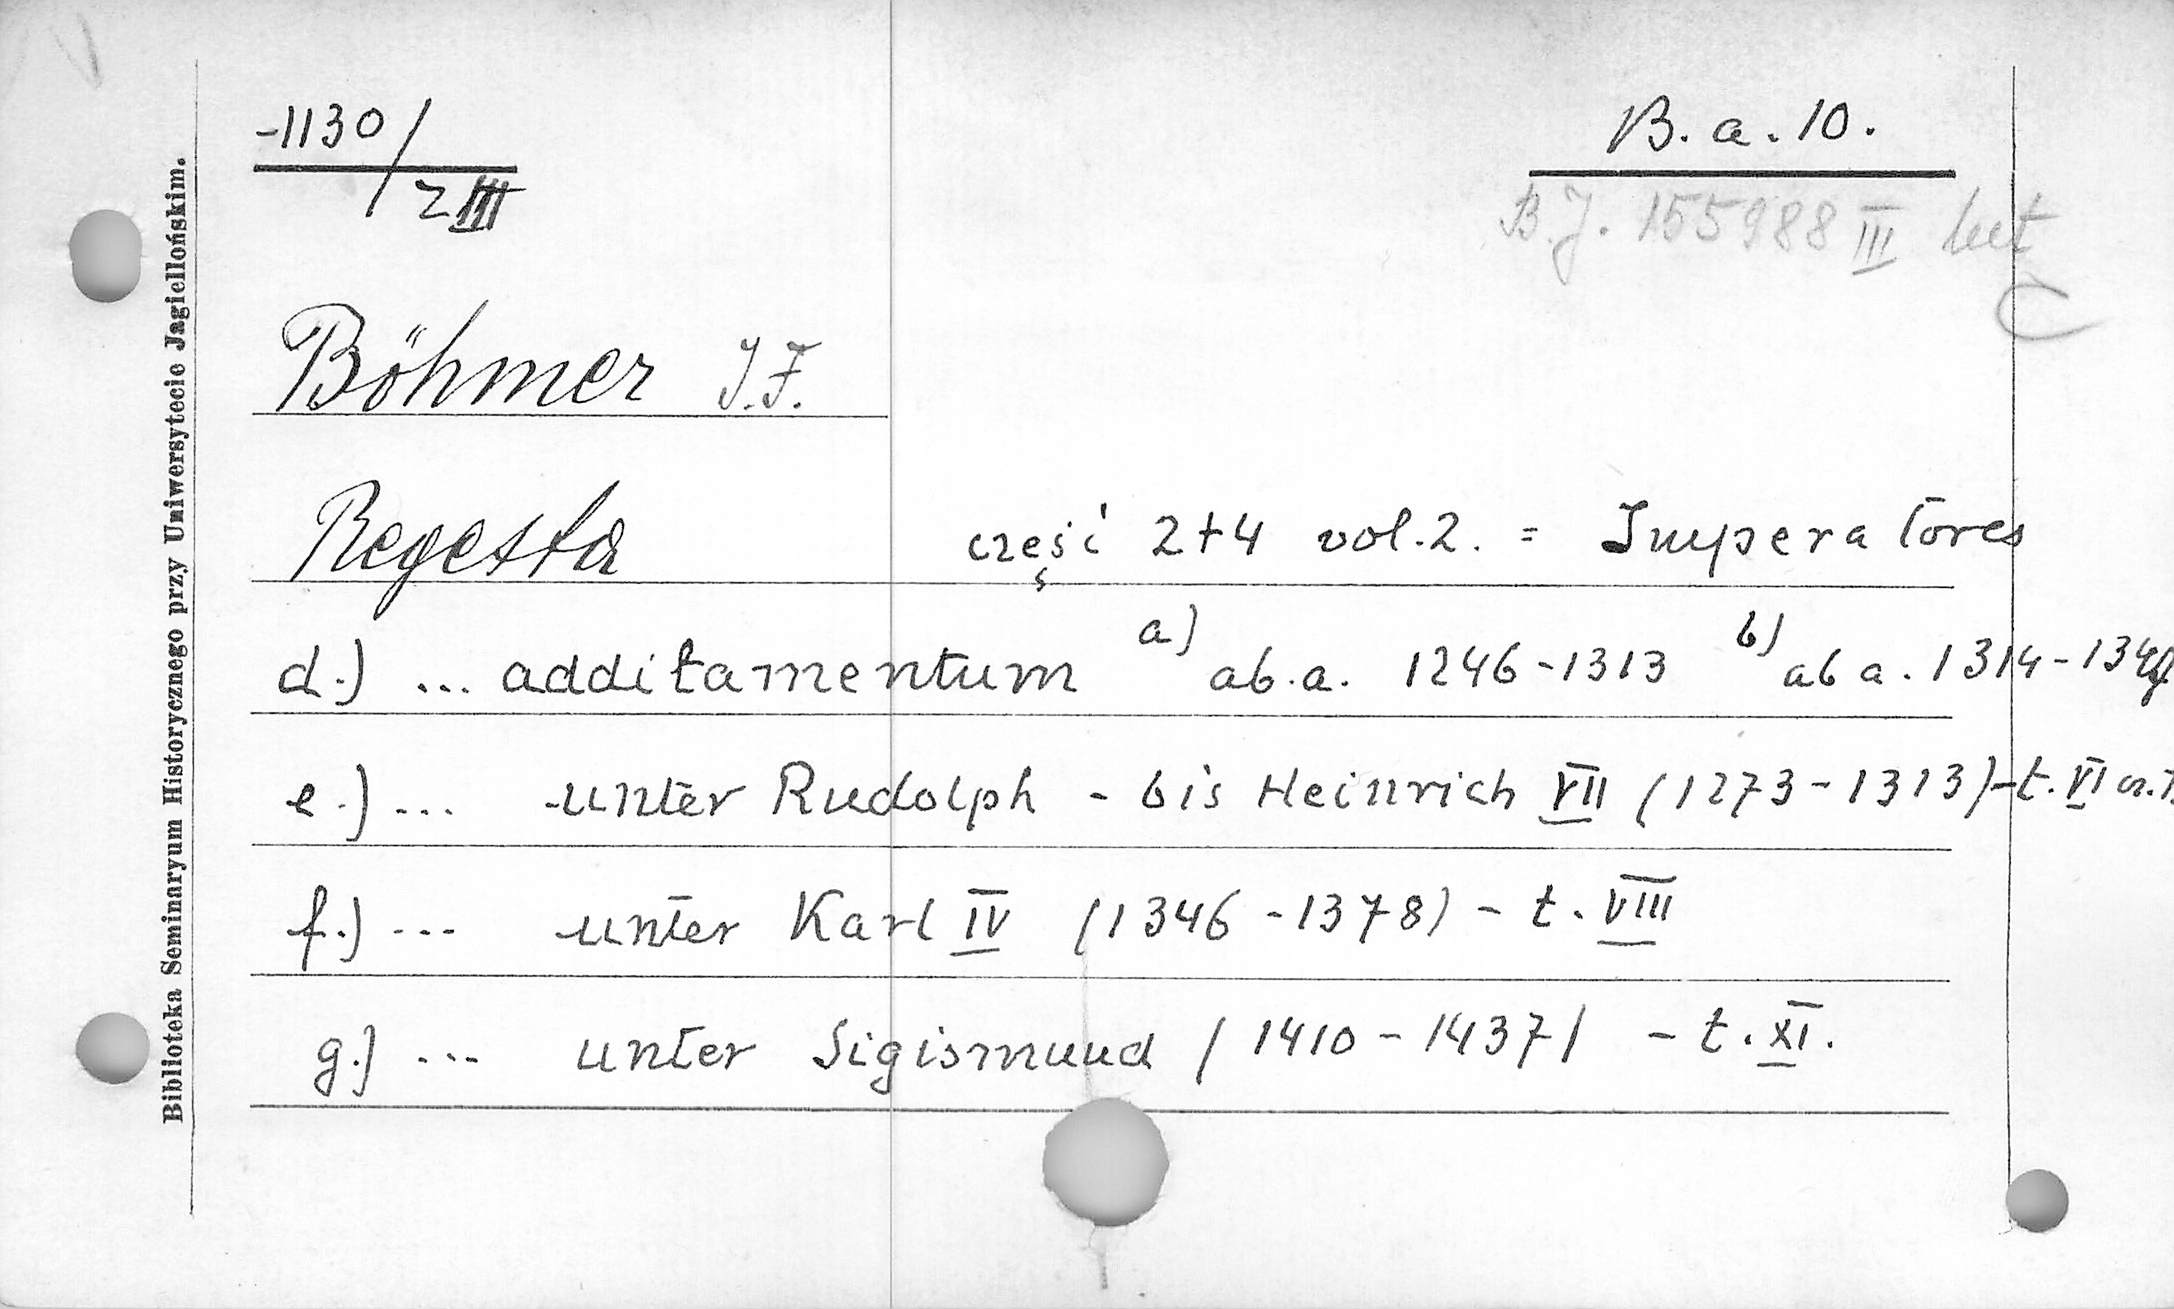 -1130/
z III
B. a. 10.
B.J. 155988 III
Böhmer J.F.
Regesta część 2+4 vol.2. = Imperatores
d.) ... additamentum a) ab.a. 1246-1313 b) ab a. 1314-134
e.) ... unter Rudolph - bis Heinrich VII (1273-1313)-t. VI
f.) ... unter Karl IV (1346-1378) - t. VIII
g.) ... unter Sigismund / 1410 - 1437 / - t. XI.
Biblioteka Seminaryum Historycznego przy Uniwersytecie Jagiellońskim.